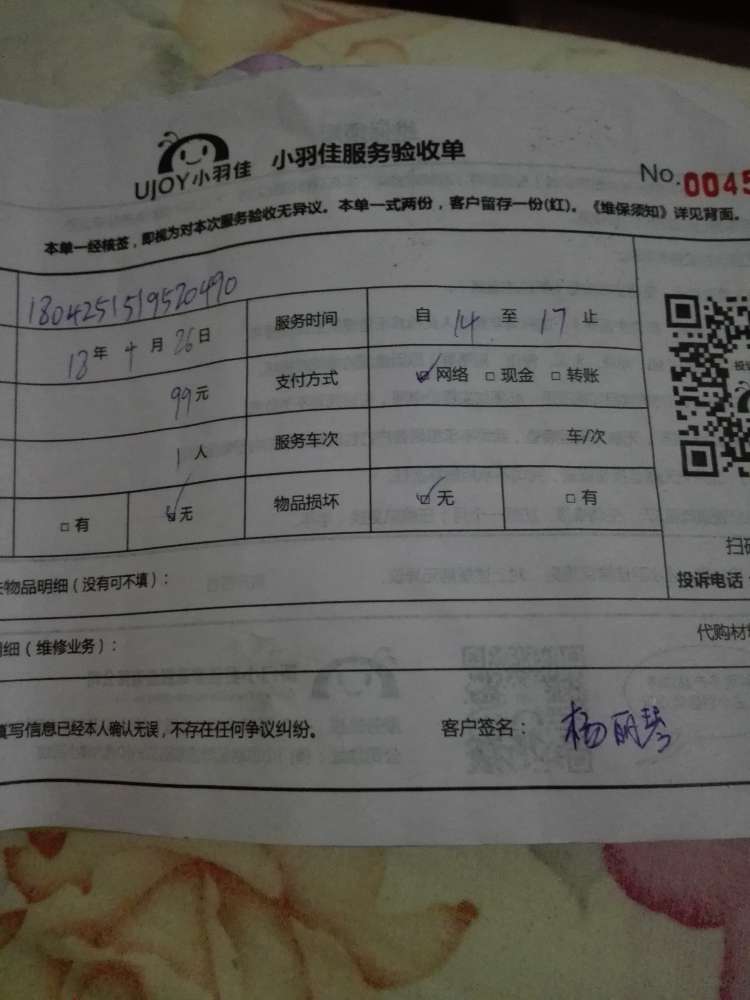 UJOY小羽佳 小羽佳服务验收单
No.0045
本单一经核签，即视为对本次服务验收无异议。本单一式两份，客户留存一份(红)。《维保须知》详见背面。
1804251519520490
18年4月26日 服务时间 自14至17止
99元 支付方式 网络 现金 转账
1人 服务车次 车/次
有 无 物品损坏 无 有
扫码
物品明细（没有可不填）：
投诉电话
细（维修业务）：
代购材
真写信息已经本人确认无误，不存在任何争议纠纷。 客户签名：杨丽琴